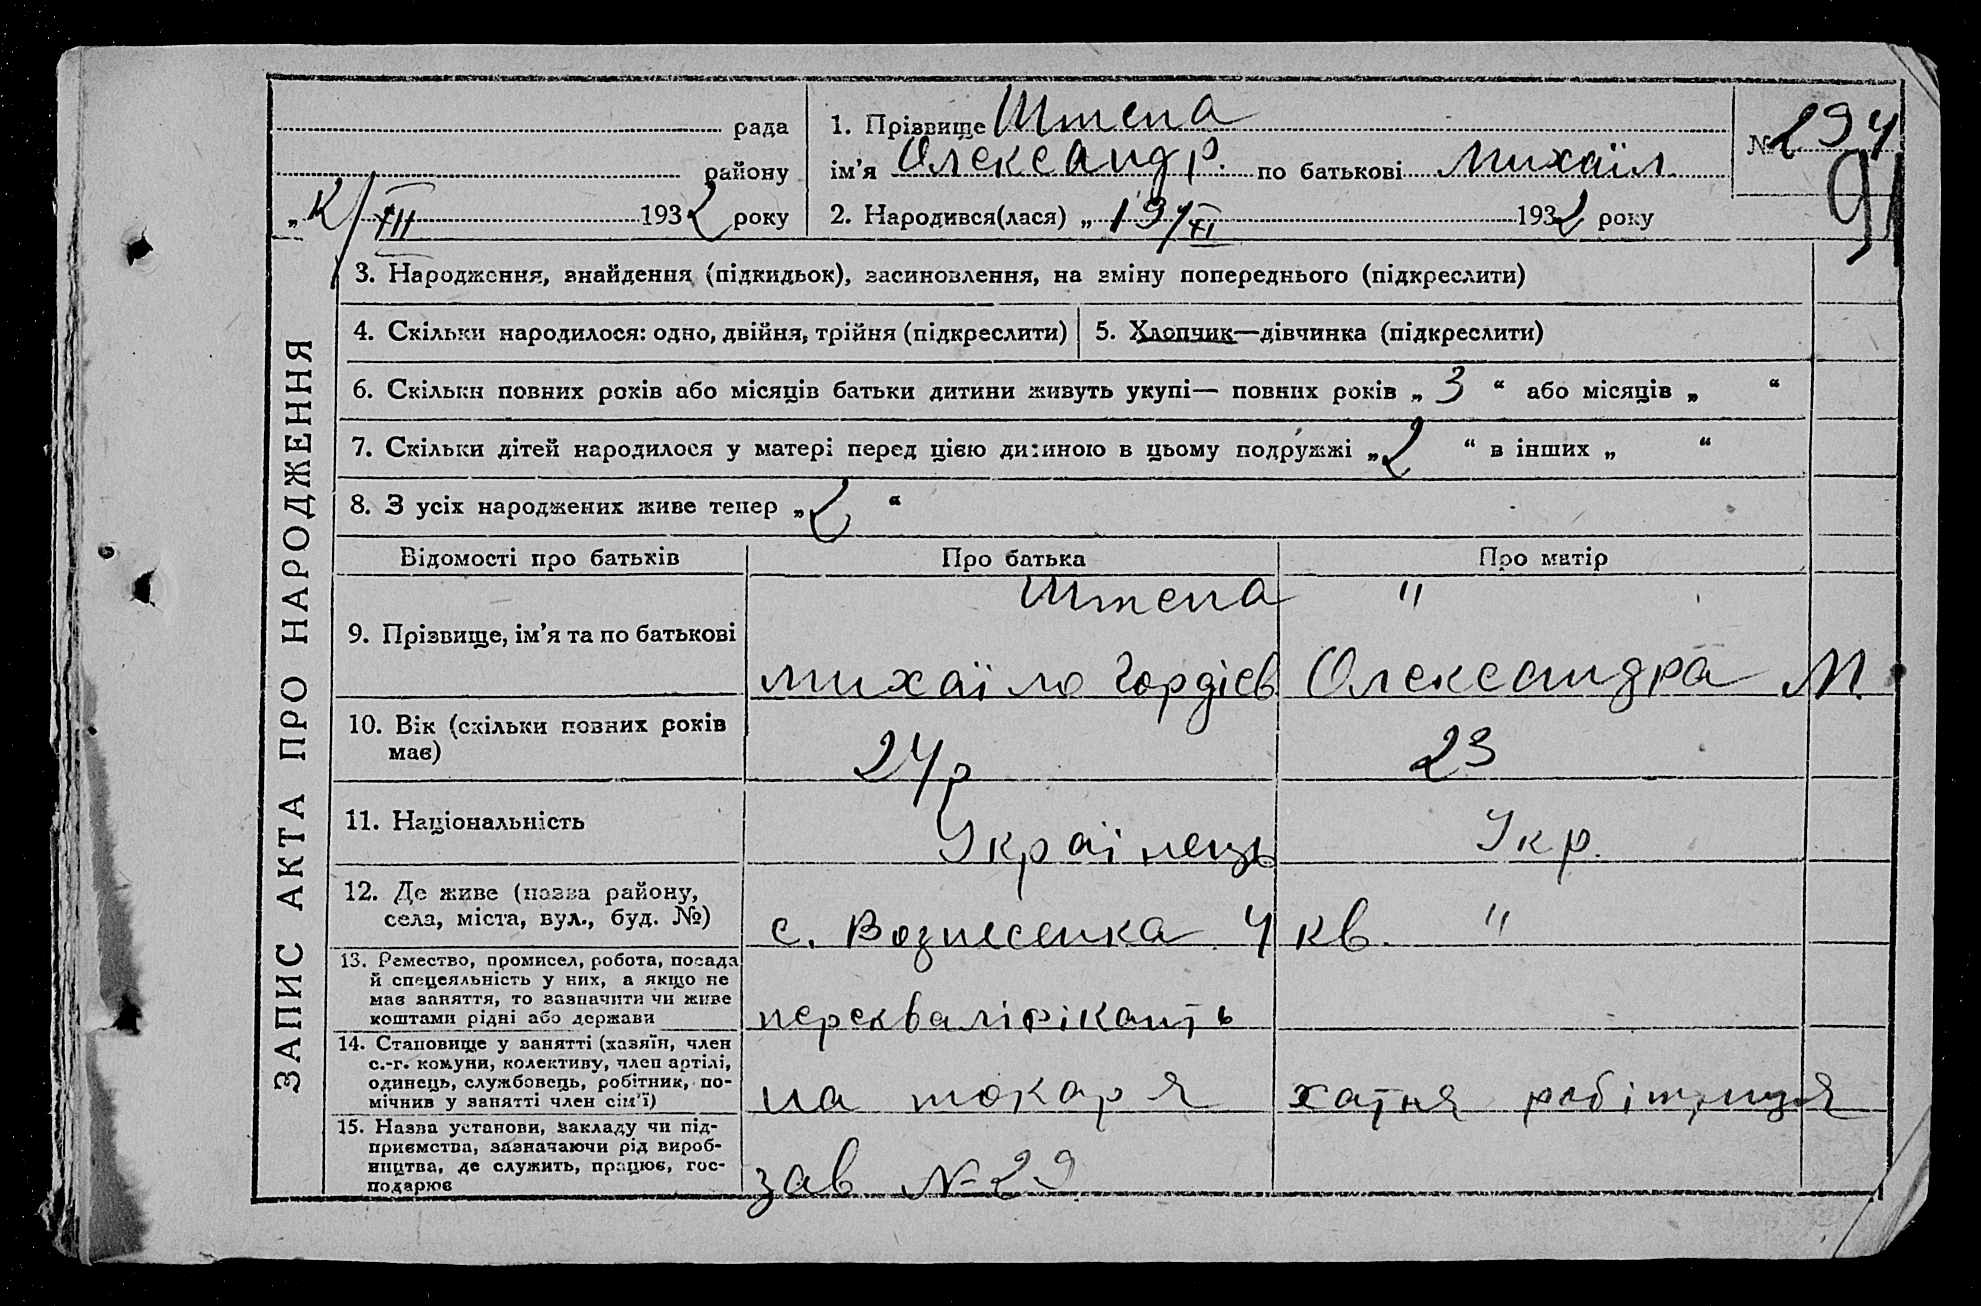 рада
району
XII 1932 року
1. Прізвище Штепа
ім’я Олександр. по батькові Михаїл
2. Народився(лася) „ 19/XI 1932 року
№ 294
91
ЗАПИС АКТА ПРО НАРОДЖЕННЯ
3. Народження, знайдення (підкидьок), засиновлення, на зміну попереднього (підкреслити)
4. Скільки народилося: одно, двійня, трійня (підкреслити)
5. Хлопчик—дівчинка (підкреслити)
6. Скільки повних років або місяців батьки дитини живуть укупі— повних років „ 3 “ або місяців „ “
7. Скільки дітей народилося у матері перед цією дитиною в цьому подружжі „ 2 “ в інших „ “
8. З усіх народжених живе тепер „ 2 “
Відомості про батьків
Про батька
Про матір
9. Прізвище, ім’я та по батькові
Штепа
Михаїло Гордієв
"
Олександра М.
10. Вік (скільки повних років
має)
24р
23
11. Національність
Українець
Укр.
12. Де живе (назва району,
села, міста, вул., буд. №)
с. Вознесенка 4 кв. "
13. Ремество, промисел, робота, посада
й спецеяльність у них, а якщо не
має заняття, то зазначити чи живе
коштами рідні або держави
перекваліфікант
14. Становище у занятті (хазяїн, член
с.-г. комуни, колективу, член артілі,
одинець, службовець, робітник, по-
мічнив у занятті член сім’ї)
на токаря
хатня робітниця
15. Назва установи, закладу чи під-
приємства, зазначаючи рід вироб-
ництва, де служить, працює, гос-
подарює
зав № 29